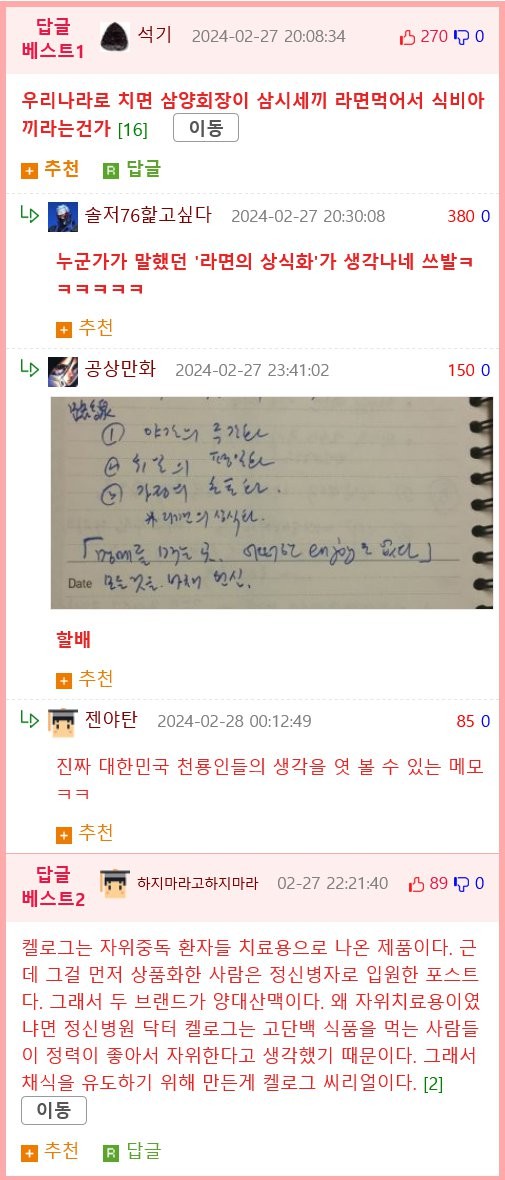 답글
베스트1
석기
2024-02-27 20:08:34
270 0
우리나라로 치면 삼양회장이 삼시세끼 라면먹어서 식비아
끼라는건가 [16] 이동
추천 R 답글
솔저76핥고싶다 2024-02-27 20:30:08 380 0
누군가가 말했던 '라면의 상식화'가 생각나네 쓰발ㅋ
ㅋㅋㅋㅋㅋ
추천
공상만화 2024-02-27 23:41:02 150 0
路線
① 야간의 주간화
② 휴일의 평일화
③ 가정의 초토화.
※라면의 상식화.
「명예를 먹는 곳. 어떠한 enjoy도 없다」
Date 모든 것을 바쳐 헌신.
할배
추천
젠야탄 2024-02-28 00:12:49 85 0
진짜 대한민국 천룡인들의 생각을 엿 볼 수 있는 메모
ㅋㅋ
추천
답글
베스트2
하지마라고하지마라 02-27 22:21:40 89 0
켈로그는 자위중독 환자들 치료용으로 나온 제품이다. 근
데 그걸 먼저 상품화한 사람은 정신병자로 입원한 포스트
다. 그래서 두 브랜드가 양대산맥이다. 왜 자위치료용이였
냐면 정신병원 닥터 켈로그는 고단백 식품을 먹는 사람들
이 정력이 좋아서 자위한다고 생각했기 때문이다. 그래서
채식을 유도하기 위해 만든게 켈로그 씨리얼이다. [2]
이동
추천 R 답글